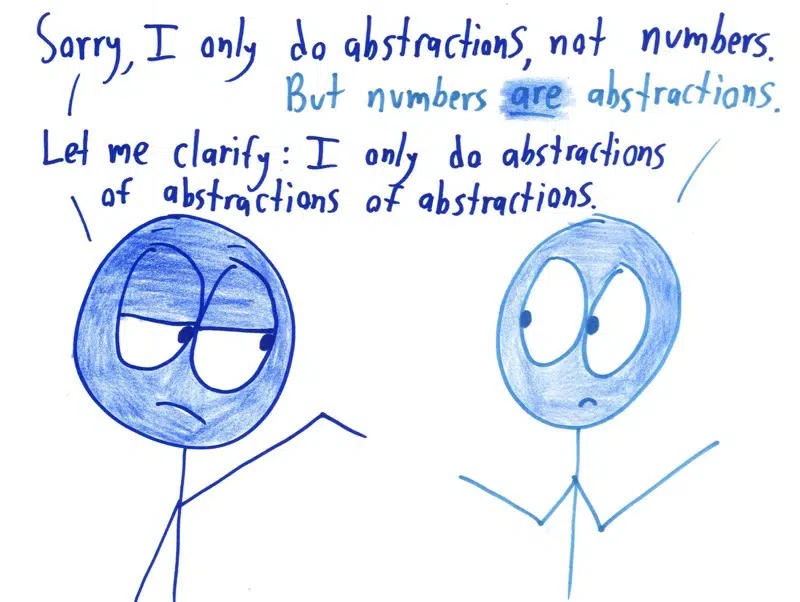 Sorry, I only do abstractions, not numbers.
But numbers are abstractions.
Let me clarify: I only do abstractions
of abstractions of abstractions.